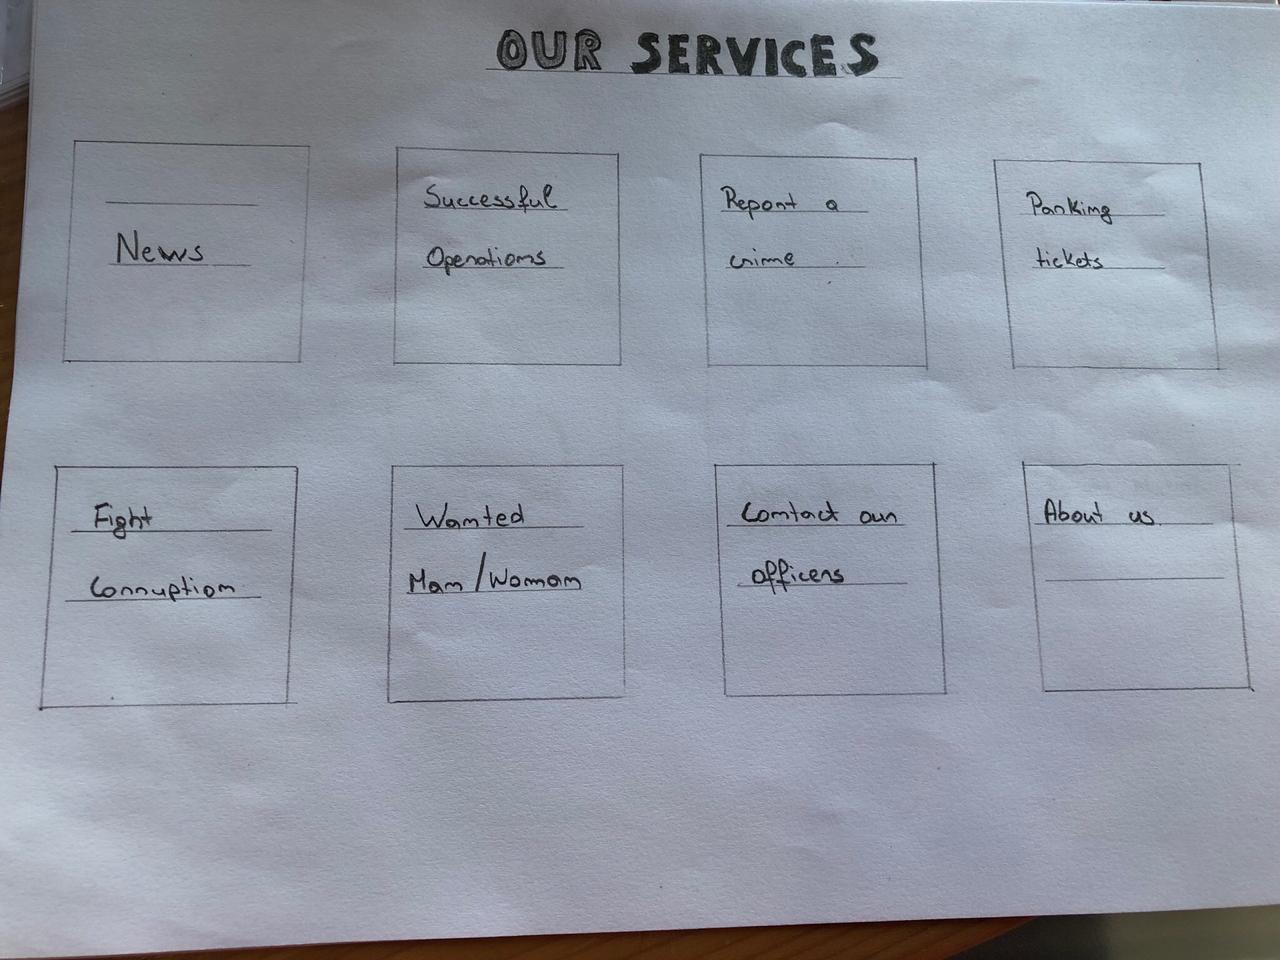 OUR SERVICES
News
Successful
Operations
Report a
crime
Parking
tickets
Fight
Corruption
Wanted
Man/Woman
Contact our
officers
About us